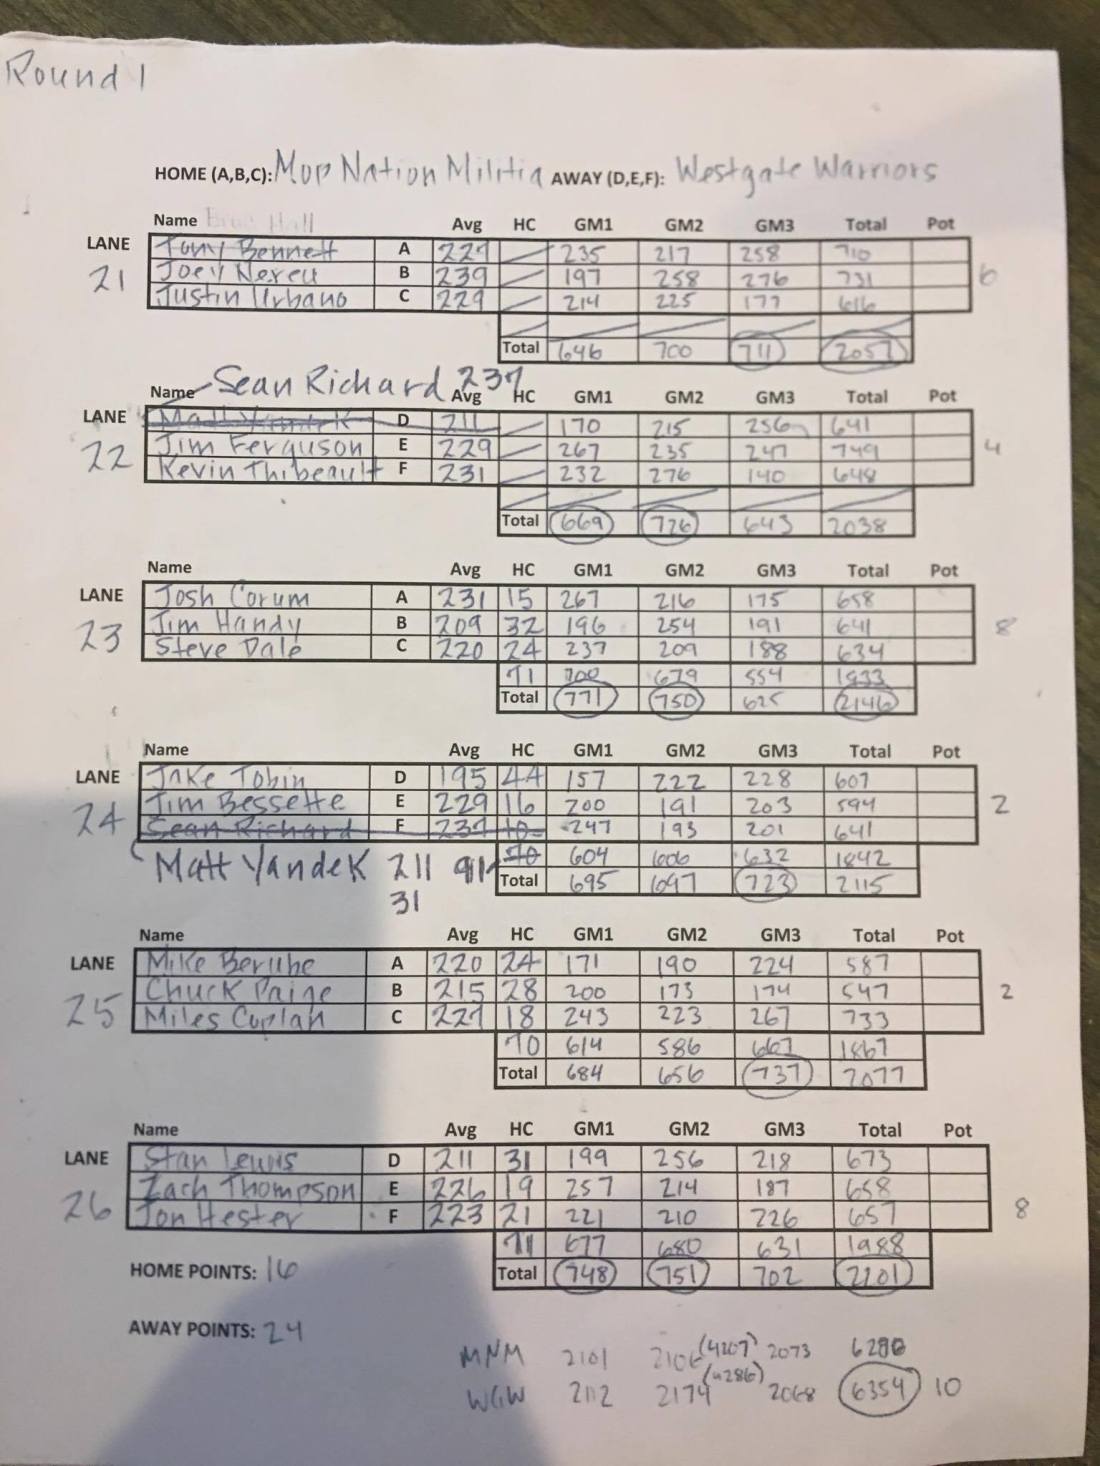 Round 1
HOME (A,B,C): Mop Nation Militia AWAY (D,E,F): Westgate Warriors
Name Avg HC GM1 GM2 GM3 Total Pot
LANE Tony Bennett A 227 235 217 258 710
21 Joey Nereu B 239 197 258 276 731 6
Justin Urbano C 229 214 225 177 616
Total 646 700 711 2057
Name Sean Richard 237 Avg HC GM1 GM2 GM3 Total Pot
LANE Matt Yandek D 211 170 215 256 641
22 Jim Ferguson E 229 267 235 247 749 4
Kevin Thibeault F 231 232 276 140 648
Total 669 726 643 2038
Name Avg HC GM1 GM2 GM3 Total Pot
LANE Josh Corum A 231 15 267 216 175 658
23 Jim Handy B 209 32 196 254 191 641 8
Steve Dale C 220 24 237 209 188 634
71 700 679 554 1933
Total 771 750 625 2146
Name Avg HC GM1 GM2 GM3 Total Pot
LANE Jake Tobin D 195 44 157 222 228 607
24 Jim Bessette E 229 16 200 191 203 594 2
Sean Richard F 237 10 247 193 201 641
Matt Yandek 211 91 70 604 606 632 1842
Total 695 697 723 2115
31
Name Avg HC GM1 GM2 GM3 Total Pot
LANE Mike Berube A 220 24 171 190 224 587
25 Chuck Paige B 215 28 200 173 174 547 2
Miles Coplan C 227 18 243 223 267 733
70 614 586 667 1867
Total 684 656 737 2077
Name Avg HC GM1 GM2 GM3 Total Pot
LANE Stan Lewis D 211 31 199 256 218 673
26 Zach Thompson E 226 19 257 214 187 658 8
Jon Hester F 223 21 221 210 226 657
71 677 680 631 1988
HOME POINTS: 16 Total 748 751 702 2201
AWAY POINTS: 24
MNM 2101 2106 (4207) 2073 6280
WGW 2112 2174 (4286) 2068 6354 10